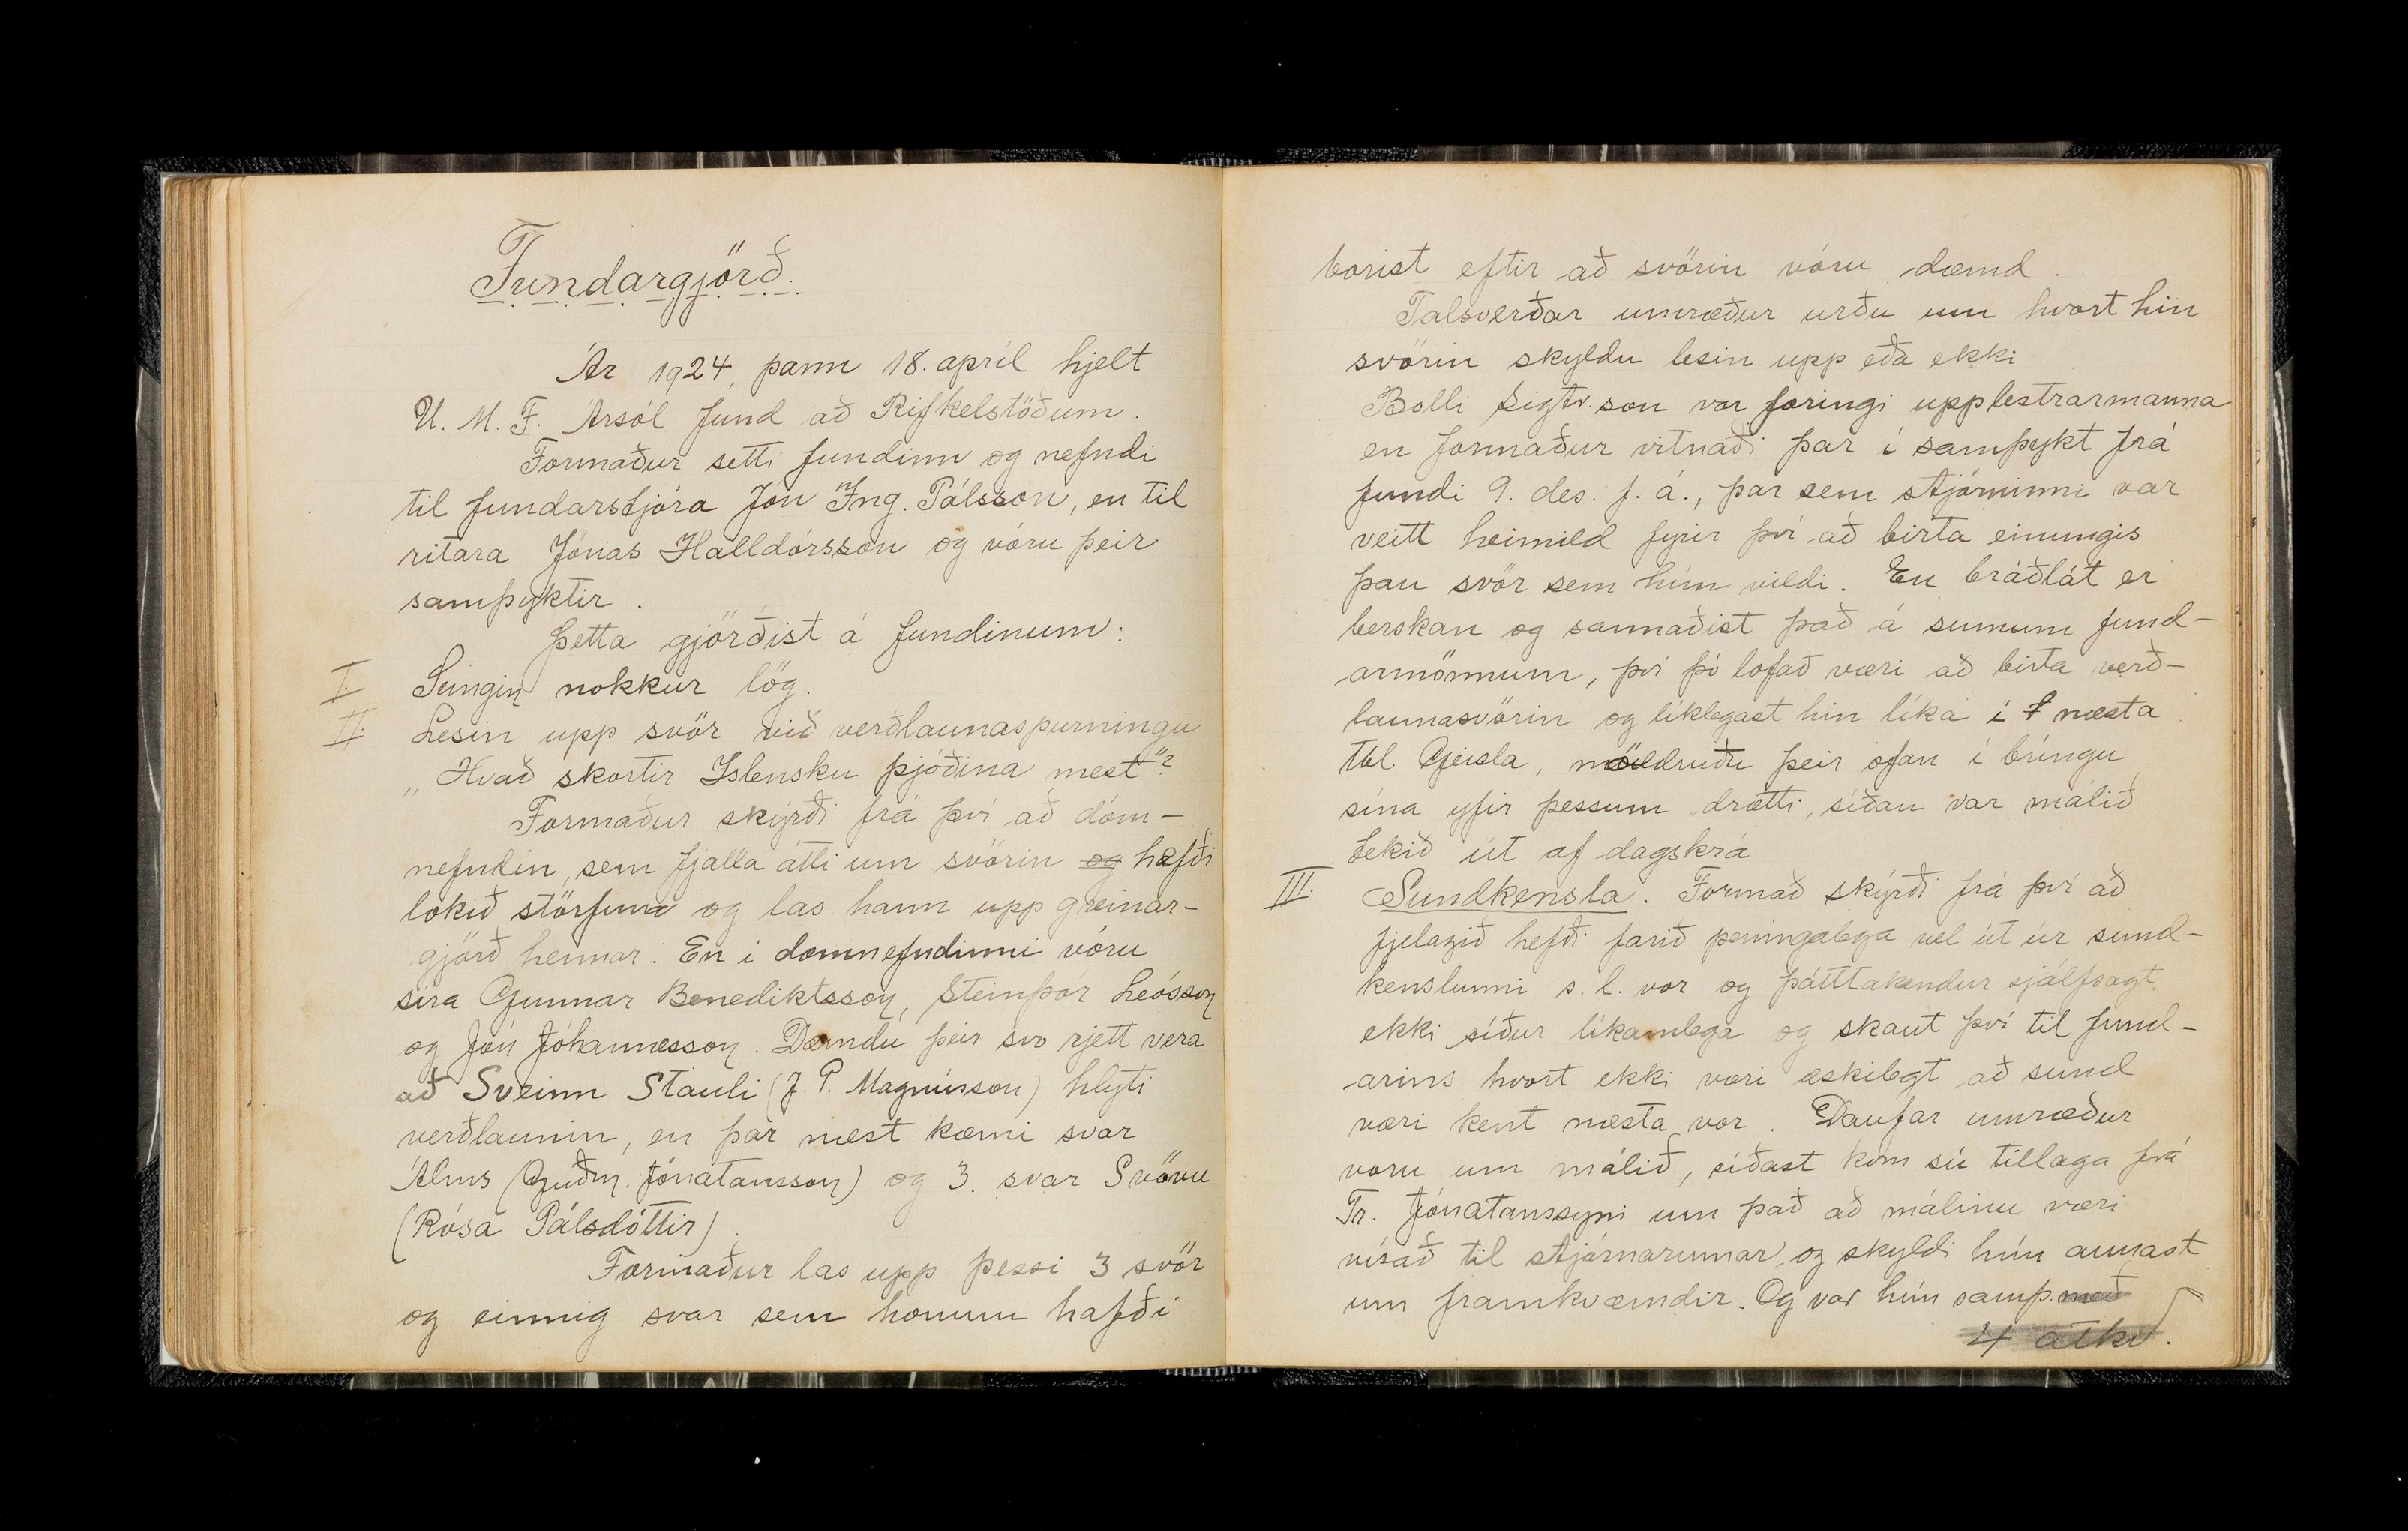 Fundargjörð.
Ár 1924, þann 18. apríl hjelt
U. M. F. Ársól fund að Rifkelstöðum.
Formaður setti fundinn og nefndi
til fundarstjóra Jón Ing. Pálsson, en til
ritara Jónas Halldórsson og vóru þeir
samþyktir.
Þetta gjörðist á fundinum:
I. Sungin nokkur lög.
II. Lesin upp svör við verðlaunaspurningu
„Hvað skortir Íslensku þjóðina mest"?
Formaður skýrði frá því að dóm-
nefndin, sem fjalla átti um svörin og hefði
lokið störfum og las hann upp greinar-
gjörð hennar. En í domnefndinni vóru
síra Gunnar Benediktsson, Steinþór Leósson
og Jón Jóhannesson. Dæmdu þeir svo rjett vera
að Sveinn Stauli (J. P. Magnússon) hlyti
verðlaunin, en þar næst kæmi svar
Álms (Guðm. Jónatansson) og 3. svar Svövu
(Rósa Pálsdóttir).
Formaður las upp þessi 3 svör
og einnig svar sem honum hafði
borist eftir að svörin vóru dæmd.
Talsverðar umræður urðu um hvort hin
svörin skyldu lesin upp eða ekki
Bolli Sigtr.son var foringi upplestrarmanna
en formaður vitnaði þar í samþykt frá
fundi 9. des. f. á., þar sem stjórninni var
veitt heimild fyrir því að birta einungis
þau svör sem hún vildi. En bráðlát er
berskan og sannaðist það á sumum fund-
armönnum, því þó lofað væri að birta verð-
launasvörin og líklegast hin líka í næsta
tbl. Geisla, mölldruðu þeir ofan í bringu
sína yfir þessum drætti, síðan var málið
tekið út af dagskrá
III. Sundkensla. Formað skýrði frá því að
fjelagið hefði farið peningalega vel út úr sund-
kenslunni s. l. vor og þátttakendur sjálfsagt
ekki síður líkamlega og skaut því til fund-
arins hvort ekki væri æskilegt að sund
væri kent næsta vor. Daufar umræður
voru um málið, síðast kom sú tillaga frá
Tr. Jónatanssyni um það að málinu væri
vísað til stjórnarinnar, og skyldi hún annast
um framkvæmdir. Og var hún samþ. með
4 atkv.